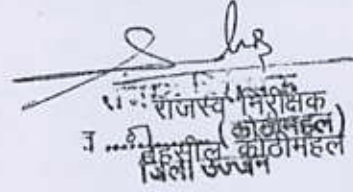 राजस्व निरीक्षक
(कोठीमहल)
तहसील कोठीमहल
जिला उज्जैन